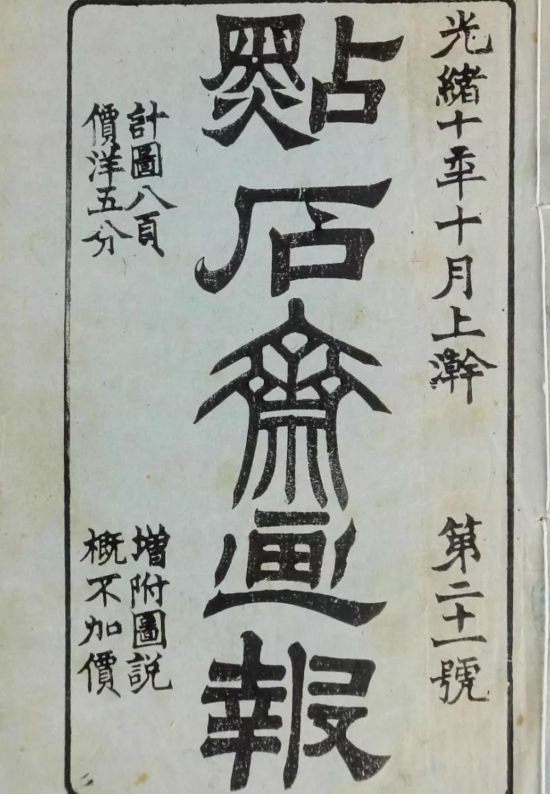 光緒十年十月上澣
第二十一號
點石齋画報
計圖八頁
價洋五分
増附圖説
概不加價